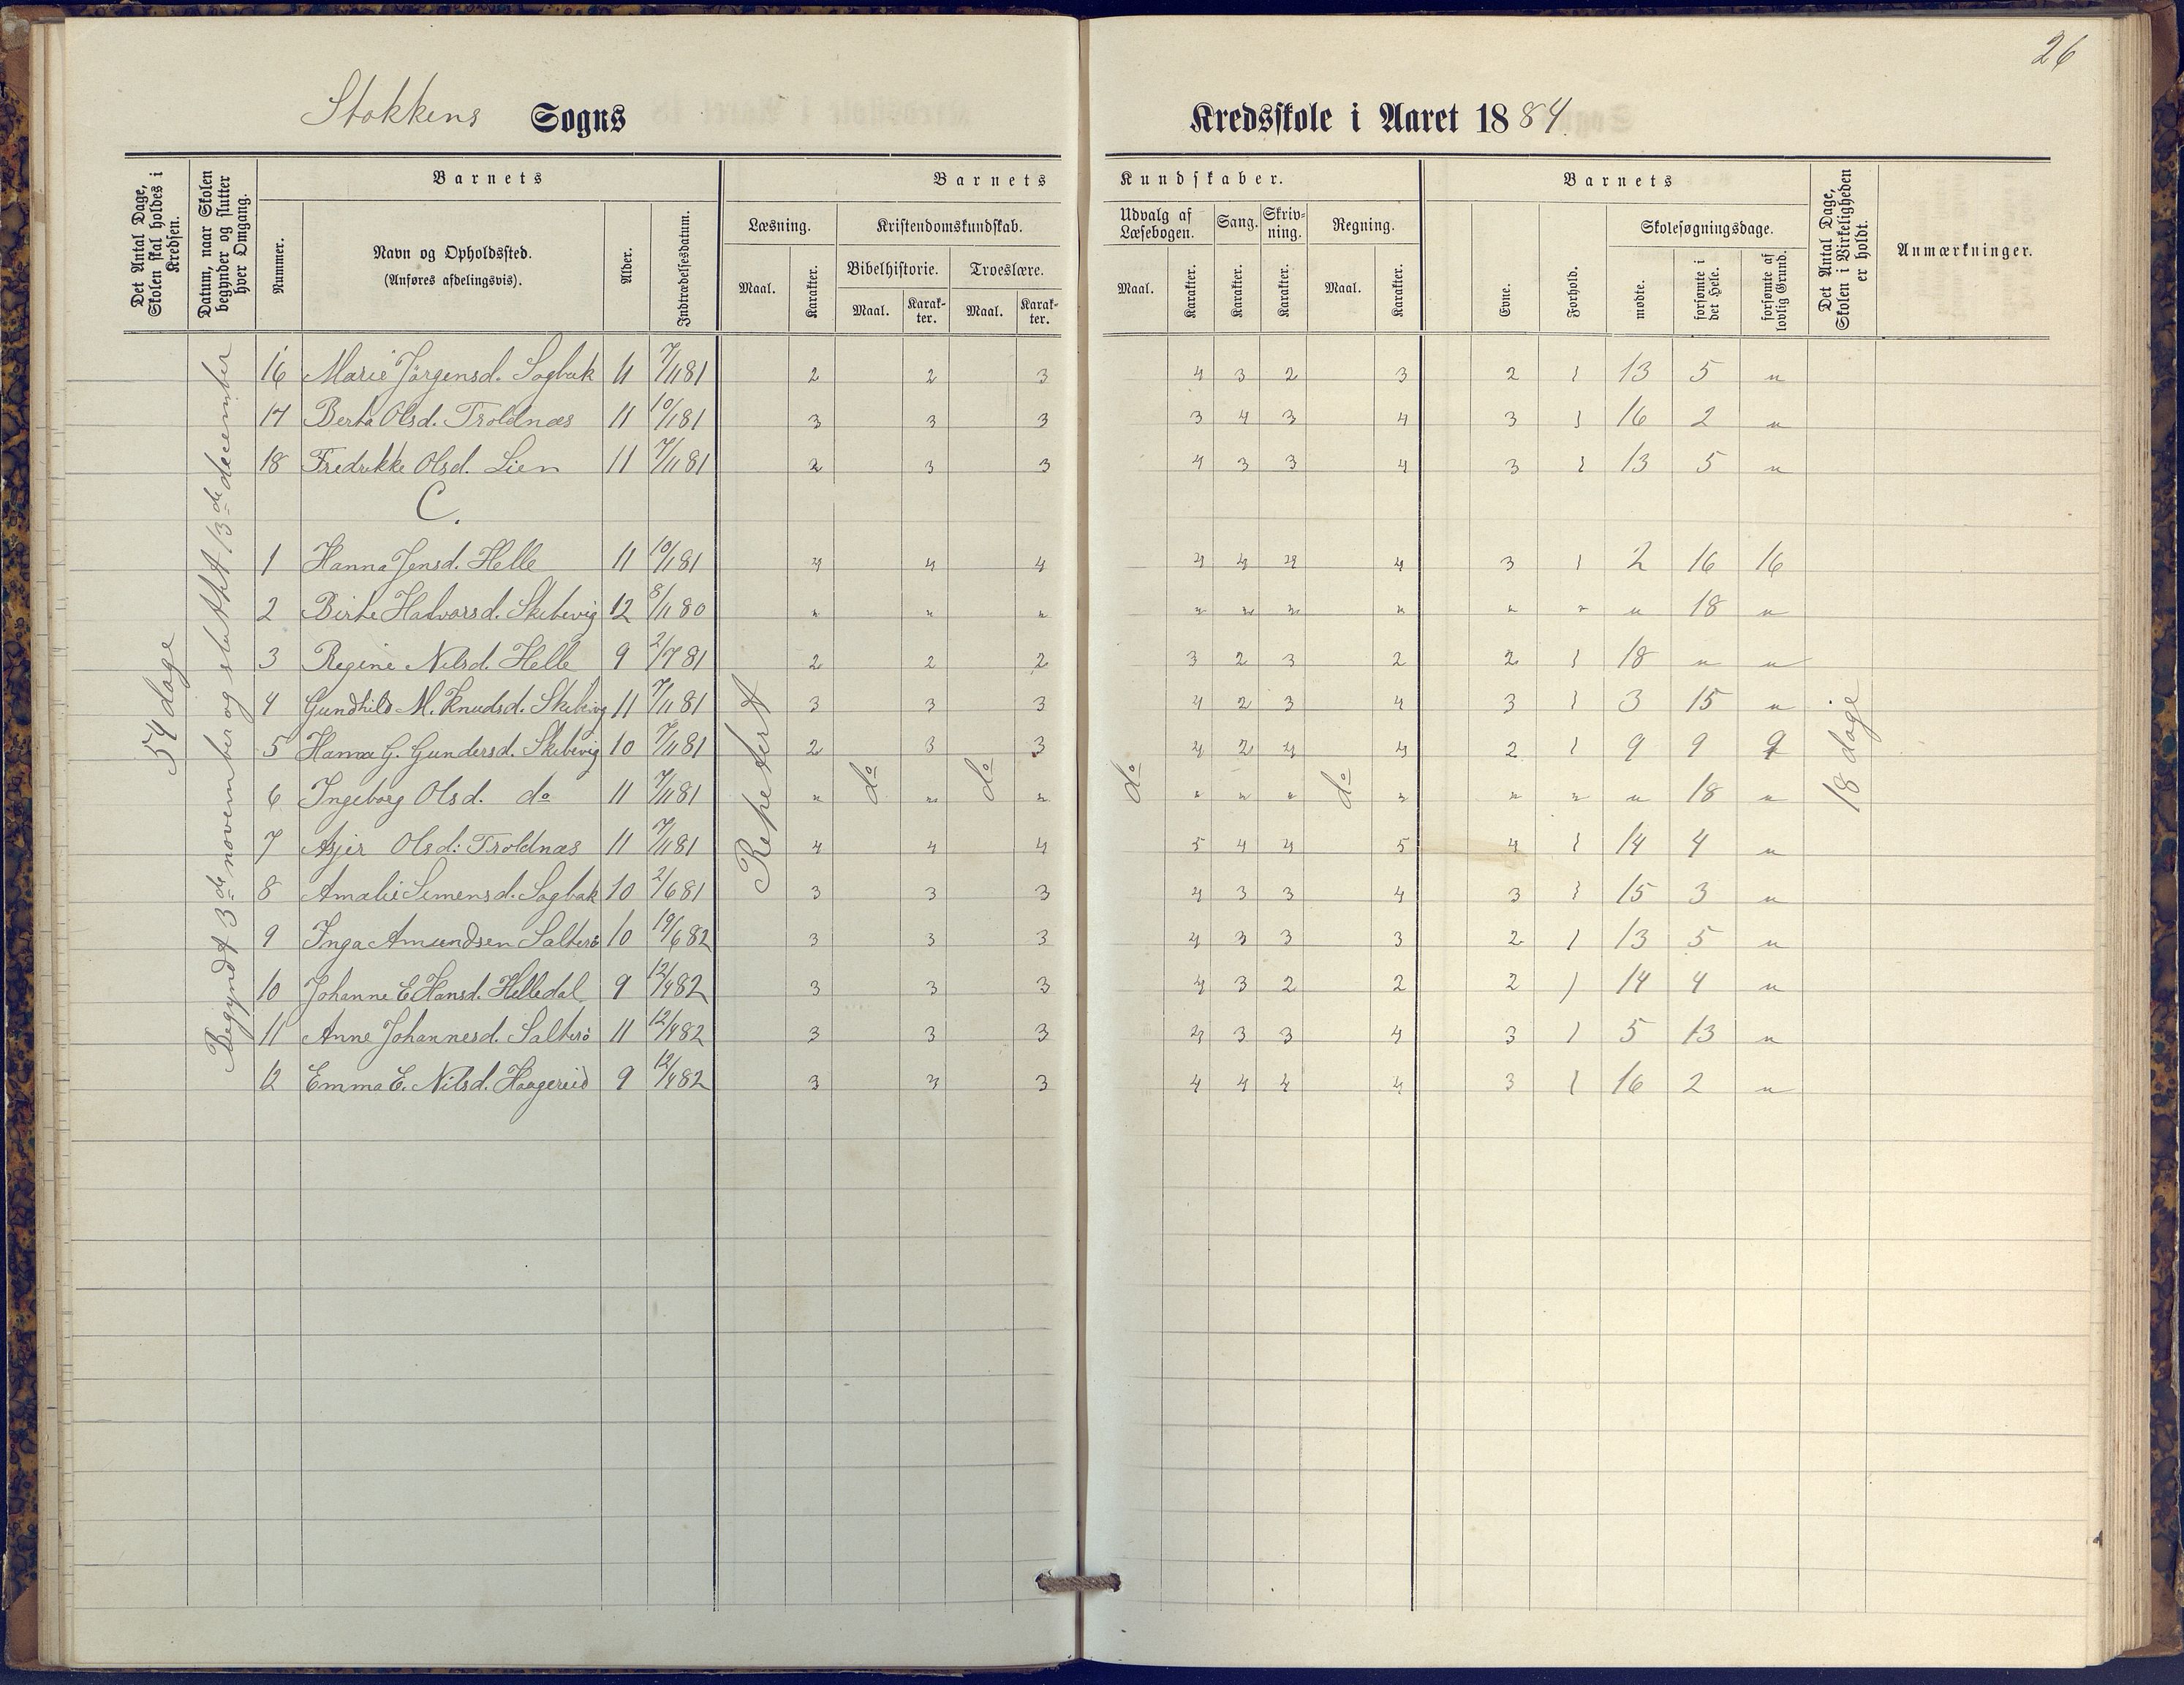 26
Stokkens Sogns Kredsskole i Aaret 1884.
Det Antal Dage, Skolen skal holdes i Kredsen.
Datum, naar Skolen begynder og slutter hver Omgang.
Barnets
Nummer.
Navn og Opholdssted.
(Anføres afdelingsvis).
Alder.
Indtrædelsesdatum.
Barnets Kundskaber.
Læsning.
Maal. Karakter.
Kristendomskundskab.
Bibelhistorie. Troeslære.
Maal. Karakter. Maal. Karakter.
Udvalg af Læsebogen. Sang. Skrivning. Regning.
Maal. Karakter. Karakter. Karakter. Maal. Karakter.
Barnets
Evne. Forhold.
Skolesøgningsdage.
mødte. forsømte i det Hele. forsømte af lovlig Grund.
Det Antal Dage, Skolen i Virkeligheden er holdt.
Anmærkninger.
54 dage
Begyndt 3de november og sluttet 13de december
Repetert do do do do
18 dage
16 Marie Jörgensd. Sagbak 11 7/11 81 2 2 3 4 3 2 3 2 1 13 5 "
17 Berta Olsd. Troldnæs 11 10/1 81 3 3 3 3 4 3 4 3 1 16 2 "
18 Fredrikke Olsd. Lien 11 7/11 81 2 3 3 4 3 3 4 3 1 13 5 "
C.
1 Hanna Jensd. Helle 11 10/1 81 4 4 4 4 4 4 4 3 1 2 16 16
2 Birte Halvorsd. Skibevig 12 8/11 80 " " " " " " " " " " 18 "
3 Regine Nilsd. Helle 9 2/7 81 2 2 2 3 2 3 2 2 1 18 " "
4 Gundhild M. Knudsd. Skibevig 11 7/11 81 3 3 3 4 2 3 4 3 1 3 15 "
5 Hanna G. Gundersd. Skibevig 10 7/11 81 2 3 3 4 2 4 4 2 1 9 9 9
6 Ingeborg Olsd. do 11 7/11 81 " " " " " " " " " " 18 "
7 Asjer Olsd: Troldnæs 11 7/11 81 4 4 4 5 4 4 5 4 1 14 4 "
8 Amalie Simensd. Sagbak 10 2/6 81 3 3 3 4 3 3 4 3 1 15 3 "
9 Inga Amundsen Salterö 10 19/6 82 3 3 3 4 3 3 3 2 1 13 5 "
10 Johanne E. Hansd. Helledal 9 12/4 82 3 3 3 4 3 2 2 2 1 14 4 "
11 Anne Johannesd. Salterö 11 12/4 82 3 3 3 4 3 3 4 3 1 5 13 "
12 Emma E. Nilsd. Haagereid 9 12/4 82 3 3 3 4 4 4 4 3 1 16 2 "